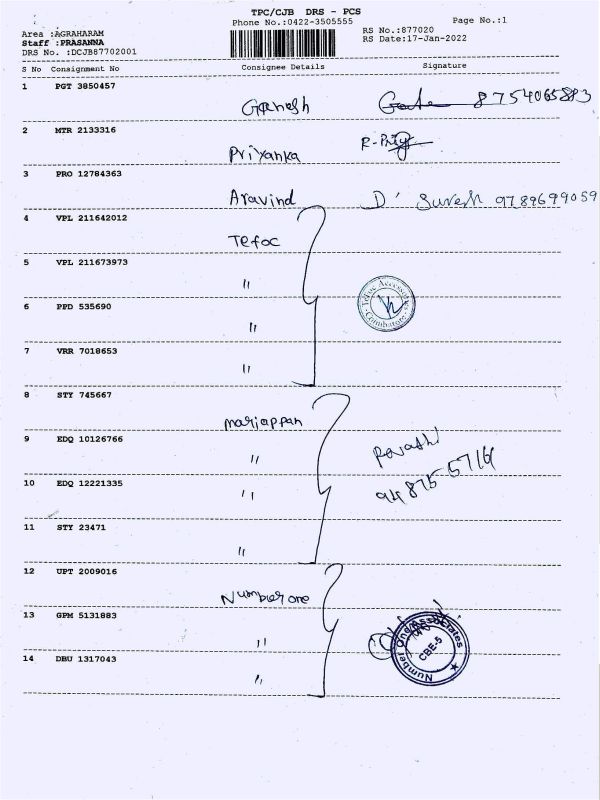 TPC/CJB DRS - PCS
Phone No.:0422-3505555 Page No.:1
Area :AGRAHARAM RS No.:877020
Staff :PRASANNA RS Date:17-Jan-2022
DRS No. :DCJB87702001
S No Consignment No Consignee Details Signature
1 PGT 3850457
Ganesh 8754065883
2 MTR 2133316
Priyanka
3 PRO 12784363
Aravind D' Suresh 9789699059
4 VPL 211642012
Tefoc
5 VPL 211673973
"
6 PPD 535690
" Tefoc Associates Coimbatore
7 VRR 7018653
"
8 STY 745667
mariappan
9 EDQ 10126766
" Revathi
10 EDQ 12221335
" 94875 57161
11 STY 23471
"
12 UPT 2009016
Number one
13 GPM 5131883
" Number One Associates CBE-5
14 DBU 1317043
"